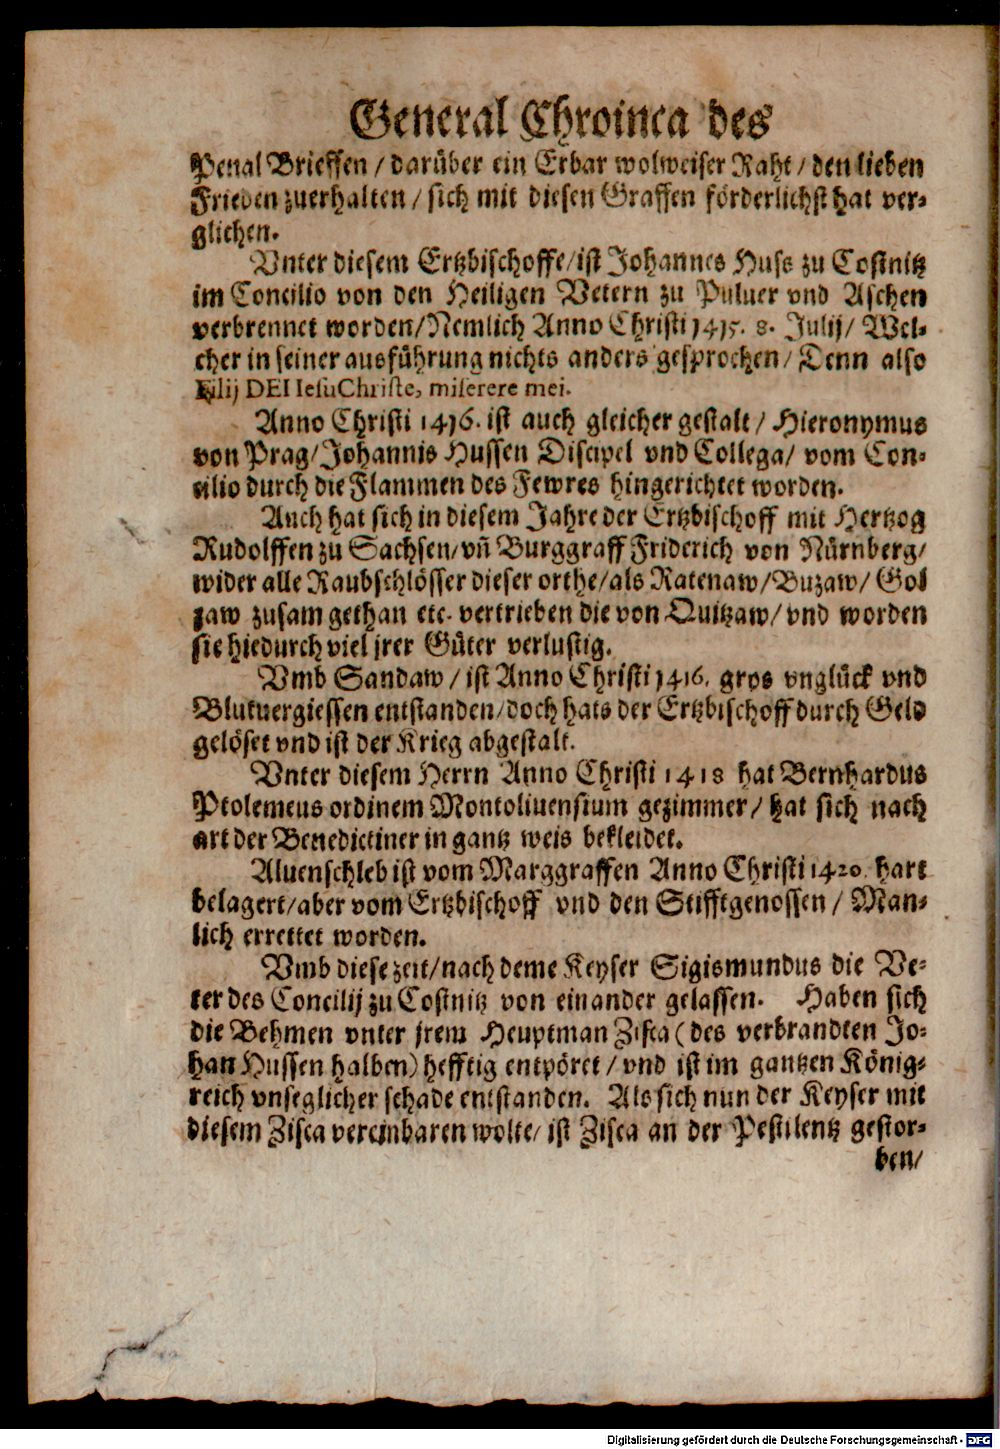 General Chroinca des
Penal Brieffen / darüber ein Erbar wolweiser Raht / den lieben
Frieden zuerhalten / sich mit diesen Graffen förderlichst hat ver-
glichen.
Vnter diesem Ertzbischoffe / ist Johannes Huss zu Costnitz
im Concilio von den Heiligen Vetern zu Puluer vnd Aschen
verbrennet worden / Nemlich Anno Christi 1415. 8. Julij / Wel-
cher in seiner ausführung nichts anders gesprochen / Denn also
Filij DEI Iesu Christe, miserere mei.
Anno Christi 1416. ist auch gleicher gestalt / Hieronymus
von Prag / Johannis Hussen Discipel vnd Collega / vom Con-
cilio durch die Flammen des Fewres hingerichtet worden.
Auch hat sich in diesem Jahre der Ertzbischoff mit Hertzog
Rudolffen zu Sachsen / vñ Burggraff Friderich von Nürnberg /
wider alle Raubschlösser dieser orthe / als Ratenaw / Buzaw / Gol
zaw zusam gethan etc. vertrieben die von Quitzaw / vnd worden
sie hiedurch viel jrer Güter verlustig.
Vmb Sandaw / ist Anno Christi 1416. gros vnglück vnd
Blutuergiessen entstanden / doch hats der Ertzbischoff durch Geld
gelöset vnd ist der Krieg abgestalt.
Vnter diesem Herrn Anno Christi 1418 hat Bernhardus
Ptolemeus ordinem Montoliuensium gezimmer / hat sich nach
art der Benedictiner in gantz weis bekleidet.
Aluenschleb ist vom Marggraffen Anno Christi 1420. hart
belagert / aber vom Ertzbischoff vnd den Stifftgenossen / Man-
lich errettet worden.
Vmb diese zeit / nach deme Keyser Sigismundus die Ve-
ter des Concilij zu Costnitz von einander gelassen. Haben sich
die Behmen vnter jrem Heuptman Zisca (des verbrandten Jo-
han Hussen halben) hefftig entpöret / vnd ist im gantzen König-
reich vnseglicher schade entstanden. Als sich nun der Keyser mit
diesem Zisca vereinbaren wolte / ist Zisca an der Pestilentz gestor-
ben /
Digitalisierung gefördert durch die Deutsche Forschungsgemeinschaft - DFG